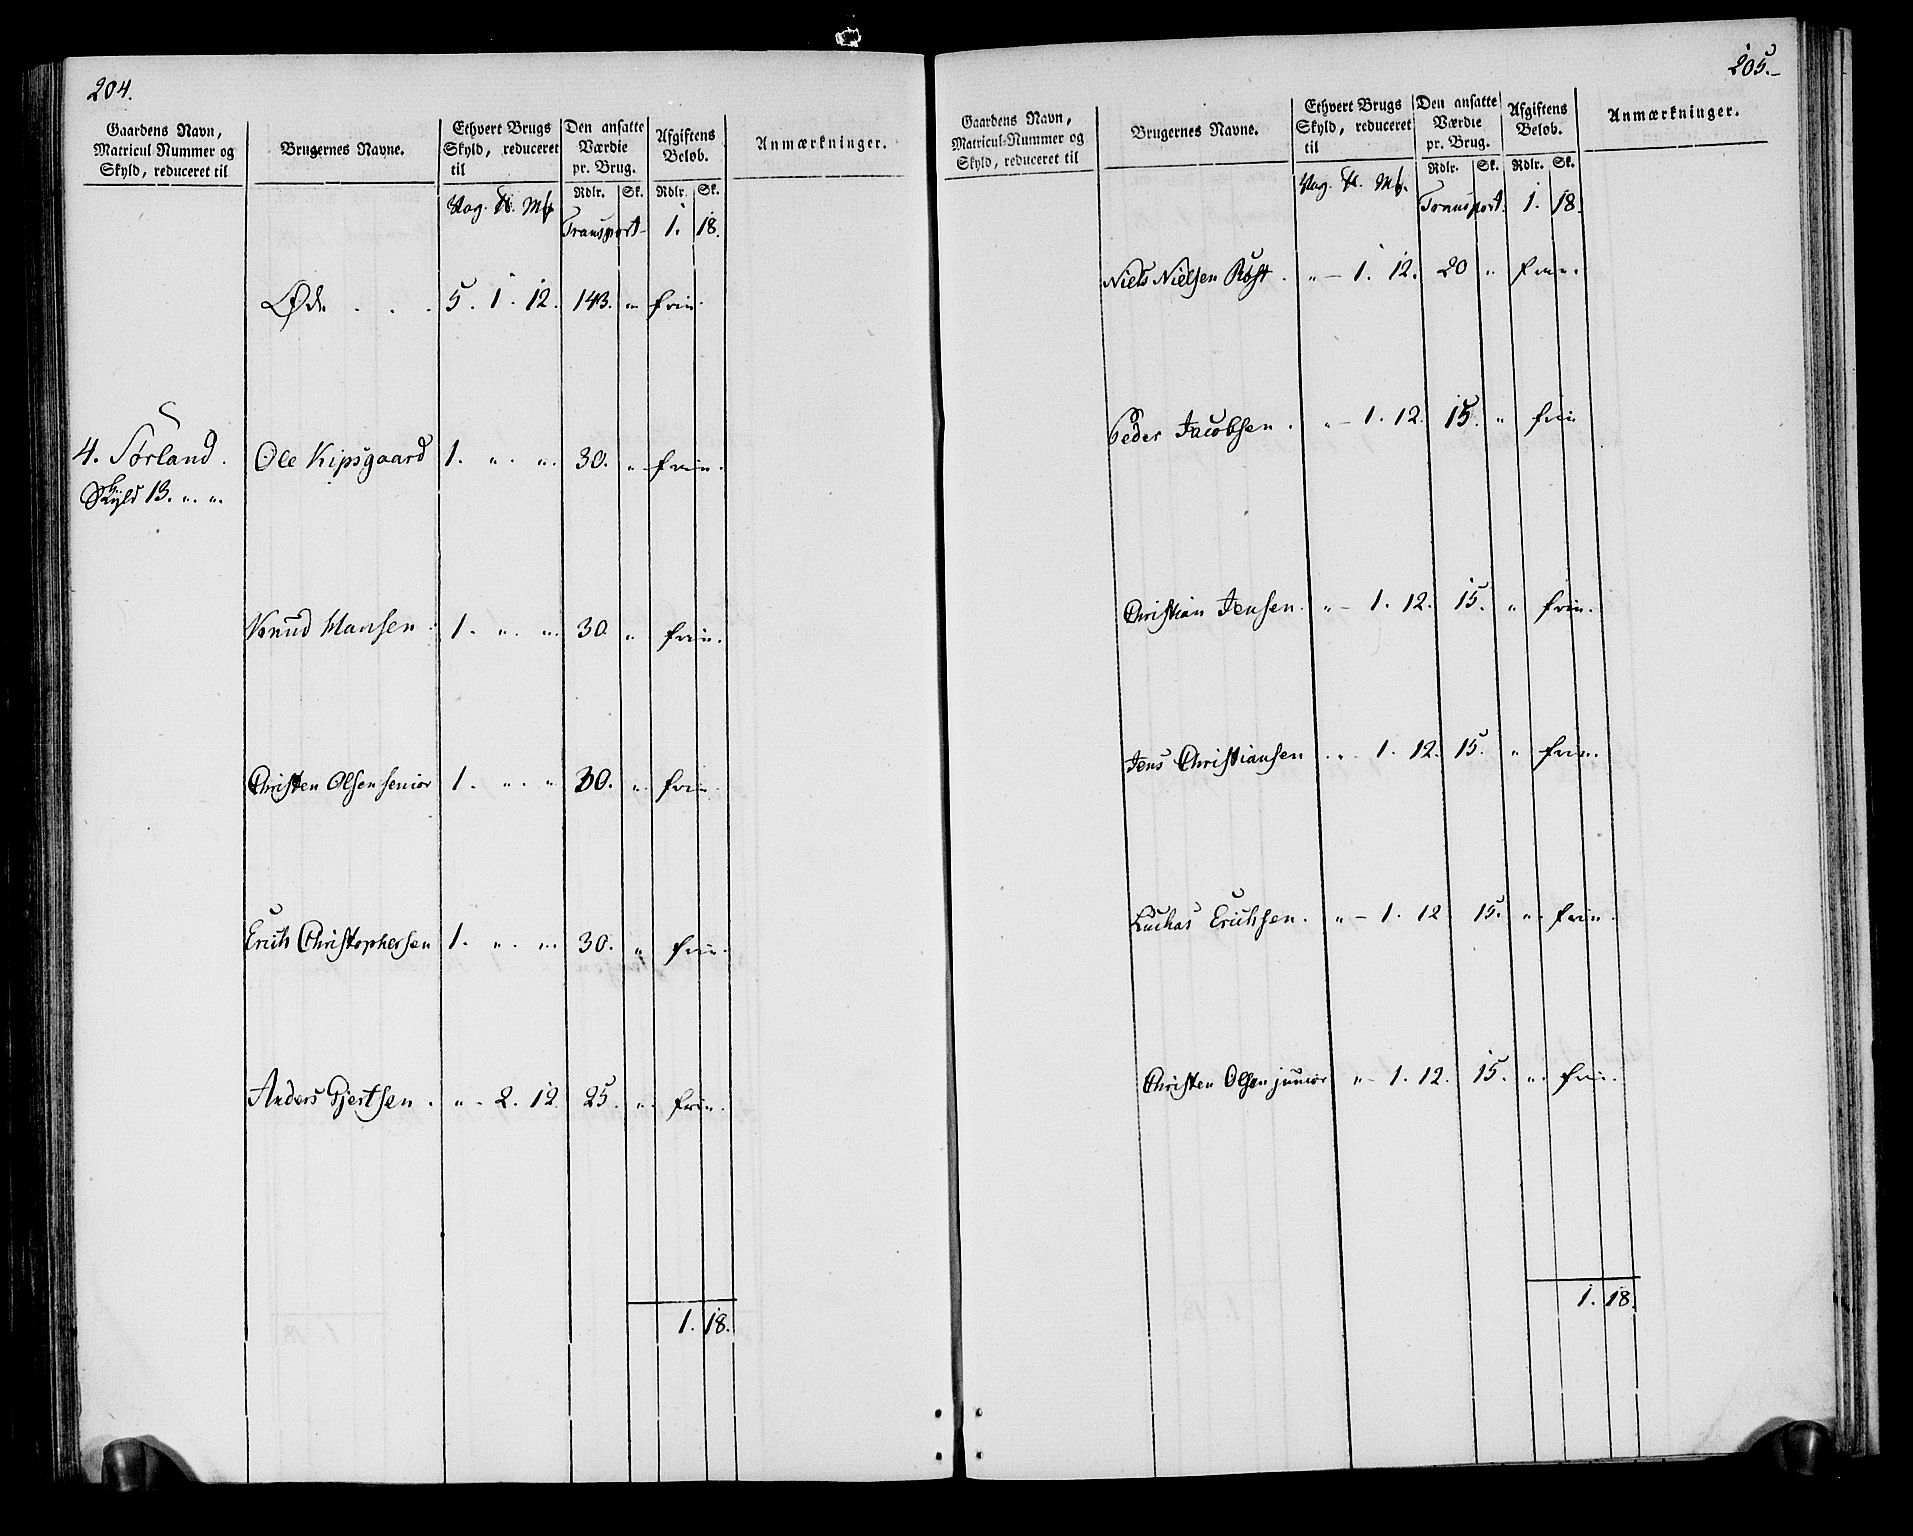 204.
Gaardens Navn, Matricul Nummer og Skyld, reduceret til | Brugernes Navne. | Ethvert Brugs Skyld, reduceret til | Den ansatte Værdie pr. Brug. | Afgiftens Beløb. | Anmærkninger.
Vog. Mk. | Rdlr. Sk. | Rdlr. Sk.
Transport | 1. 18.
Øde . . . | 5. 1. 12. | 143. „ | frie.
4. Sørland. | Ole Kipsgaard | 1. „. „. | 30. „. | frie.
Skyld 13. „. „.
Knud Hansen. | 1. „. „. | 30 „ | frie.
Christen Olsen senior | 1. „. „ | 30. „. | frie.
Erich Christophersen | 1. „. „. | 30. „ | frie.
Anders Gjertsen. | „ - 2. 12. | 25. „. | frie.
1. 18.
205.-
Gaardens Navn, Matricul-Nummer og Skyld, reduceret til | Brugernes Navne. | Ethvert Brugs Skyld, reduceret til | Den ansatte Værdie pr. Brug. | Afgiftens Beløb. | Anmærkninger.
Vog. Mk. | Rdlr. Sk. | Rdlr. Sk.
Transport. | 1. 18.
Niels Nielsen Røst. | „ - 1. 12. | 20 „ | frie.
Peder Jacobsen. | „ - 1. 12. | 15. „ | frie
Christian Jensen. | „ - 1. 12. | 15. „ | frie.
Jens Christiansen | „. 1. 12. | 15. „ | frie.
Luchas Erichsen. | „ - 1. 12 | 15. „. | frie.
Christen Olsen junior | „ - 1. 12. | 15. „. | frie.
1. 18.